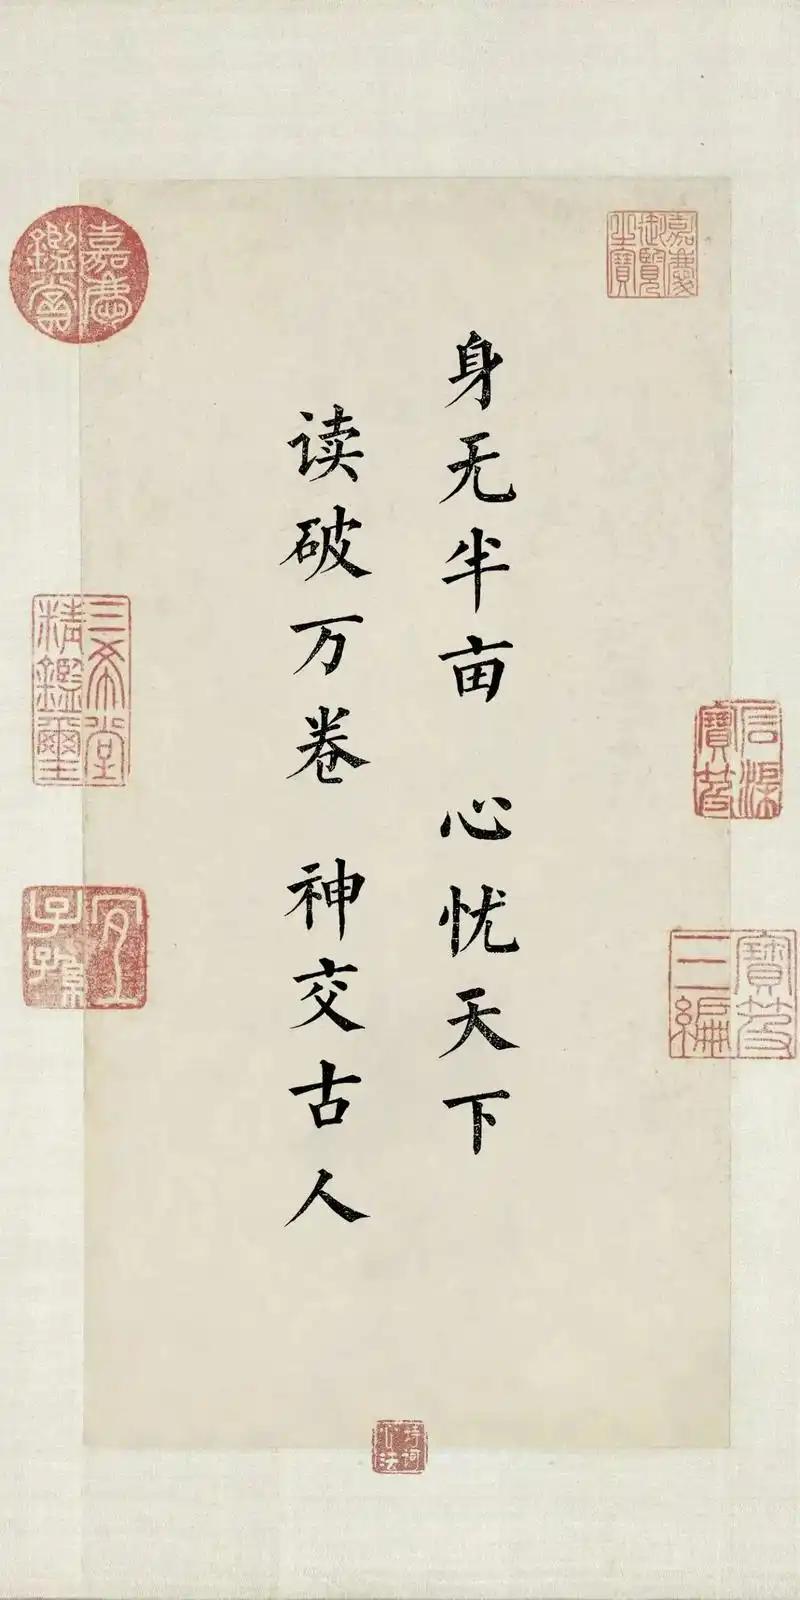 身无半亩 心忧天下
读破万卷 神交古人
嘉庆御览之宝
嘉庆鉴赏
三希堂精鉴玺
宜子孙
石渠宝笈
宝笈三编
诗词心法